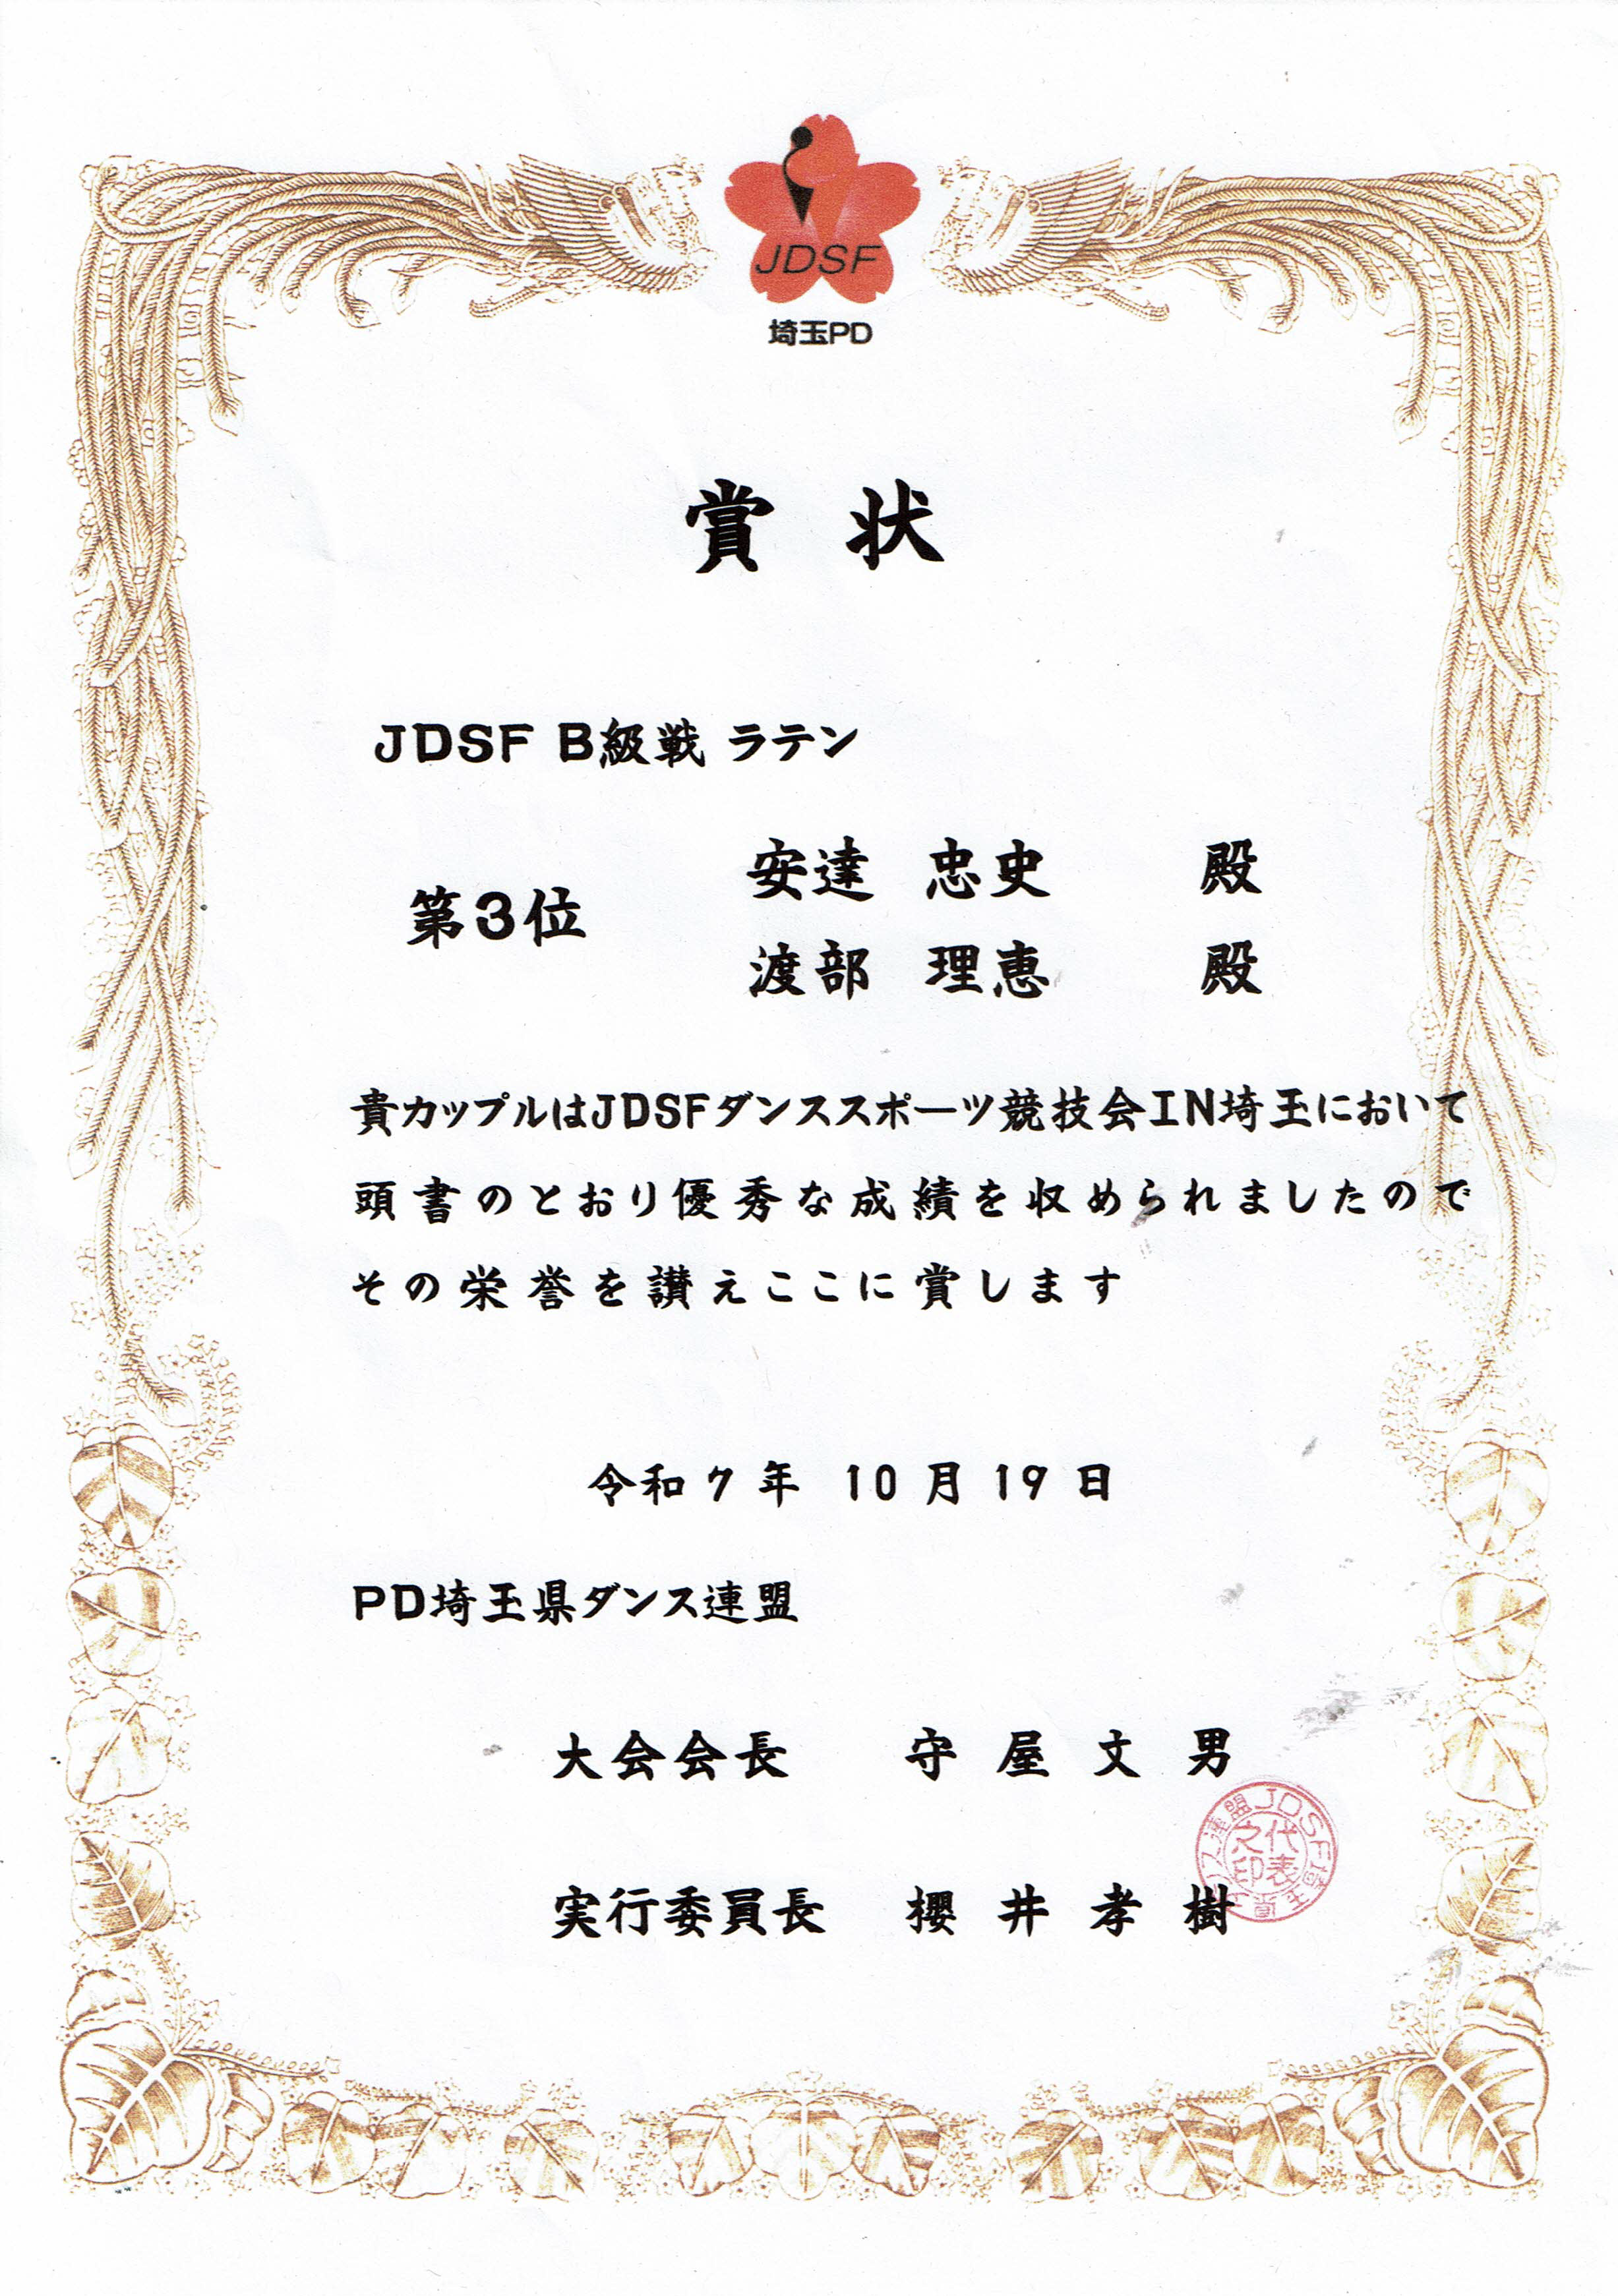 JDSF
埼玉PD
賞状
JDSF B級戦 ラテン
安達 忠史 殿
第3位
渡部 理恵 殿
貴カップルはJDSFダンススポーツ競技会IN埼玉において
頭書のとおり優秀な成績を収められましたので
その栄誉を讃えここに賞します
令和7年 10月19日
PD埼玉県ダンス連盟
大会会長 守屋文男
実行委員長 櫻井孝樹
代表
之印